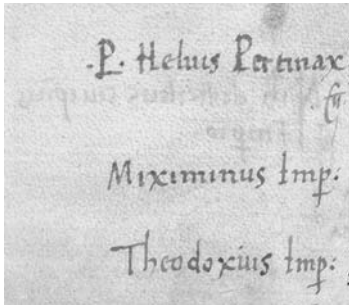 .P. Helius Pertinax
Miximinus Imp.
Theodoxius Imp: